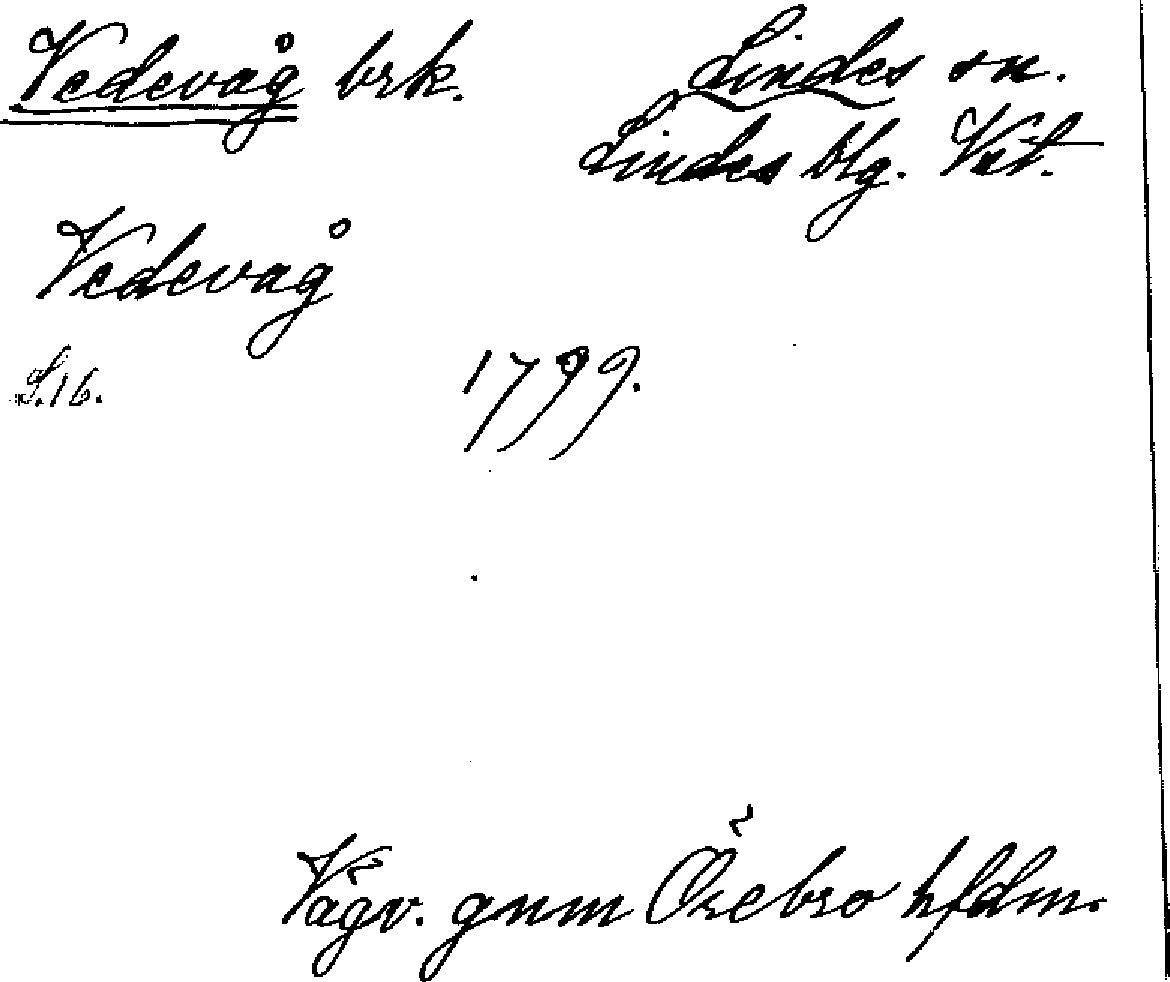 Vedevåg brk. Lindes sn.
Lindes blg. Vstm.
Vedevåg
S. 16. 1799.
Vägv. gnm Örebro hfdm.